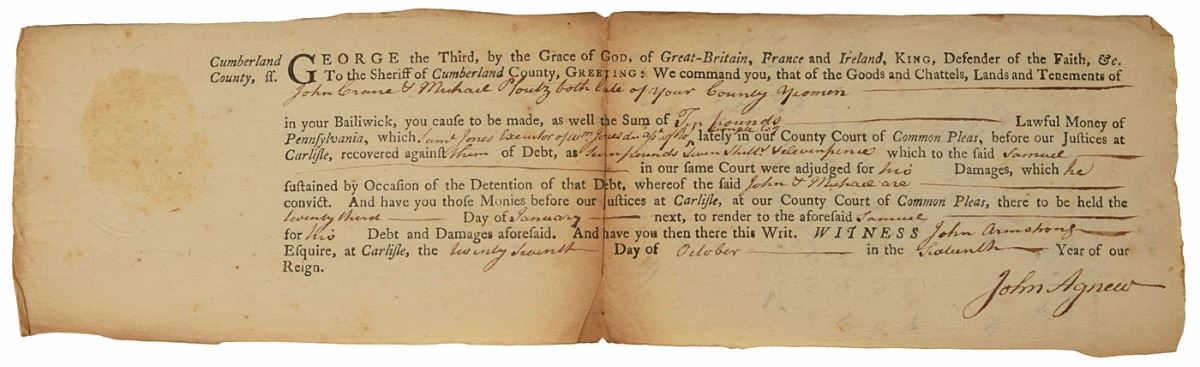 Cumberland County, ſſ.
GEORGE the Third, by the Grace of GOD, of Great-Britain, France and Ireland, KING, Defender of the Faith, &c.
To the Sheriff of Cumberland County, GREETING: We command you, that of the Goods and Chattels, Lands and Tenements of
John Crane & Michael Ploutz both late of your County Yeomen
in your Bailiwick, you cauſe to be made, as well the Sum of Ten pounds Lawful Money of
Pennſylvania, which Saml Jones Executor of Wm Jones lately in our County Court of Common Pleas, before our Juſtices at
Carliſle, recovered againſt them of Debt, as pounds Seven Shills & Elevenpence which to the ſaid Samuel
in our ſame Court were adjudged for his Damages, which he
ſuſtained by Occaſion of the Detention of that Debt, whereof the ſaid John & Michael are
convict. And have you thoſe Monies before our Juſtices at Carliſle, at our County Court of Common Pleas, there to be held the
twenty third Day of January next, to render to the aforeſaid Samuel
for his Debt and Damages aforeſaid. And have you then there this Writ. WITNESS John Armstrong
Eſquire, at Carliſle, the twenty Seventh Day of October in the Sixteenth Year of our
Reign.
John Agnew